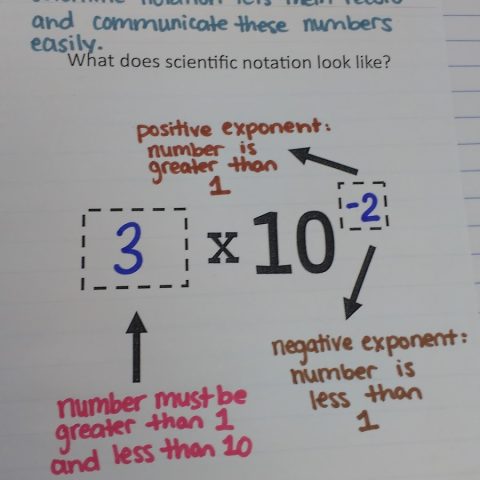 and communicate these numbers
easily.
What does scientific notation look like?
positive exponent:
number is
greater than
1
3 x 10 -2
negative exponent:
number is
less than
1
number must be
greater than 1
and less than 10